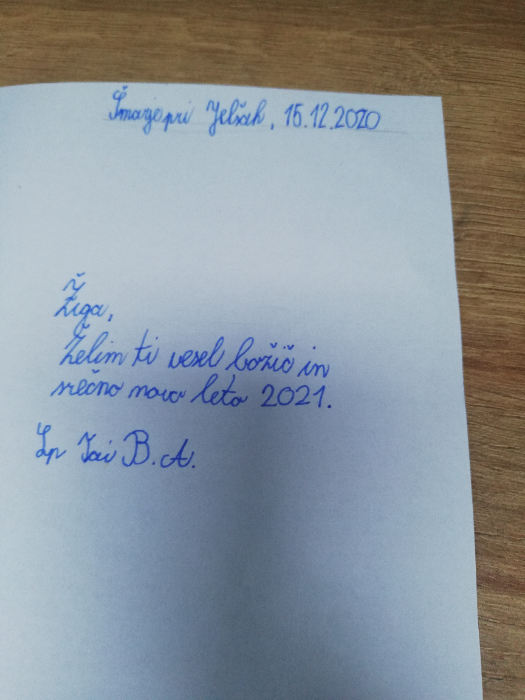 Šmarje pri Jelšah, 15.12.2020
Žiga,
Želim ti vesel božič in
srečno novo leto 2021.
Lp Jai B. A.